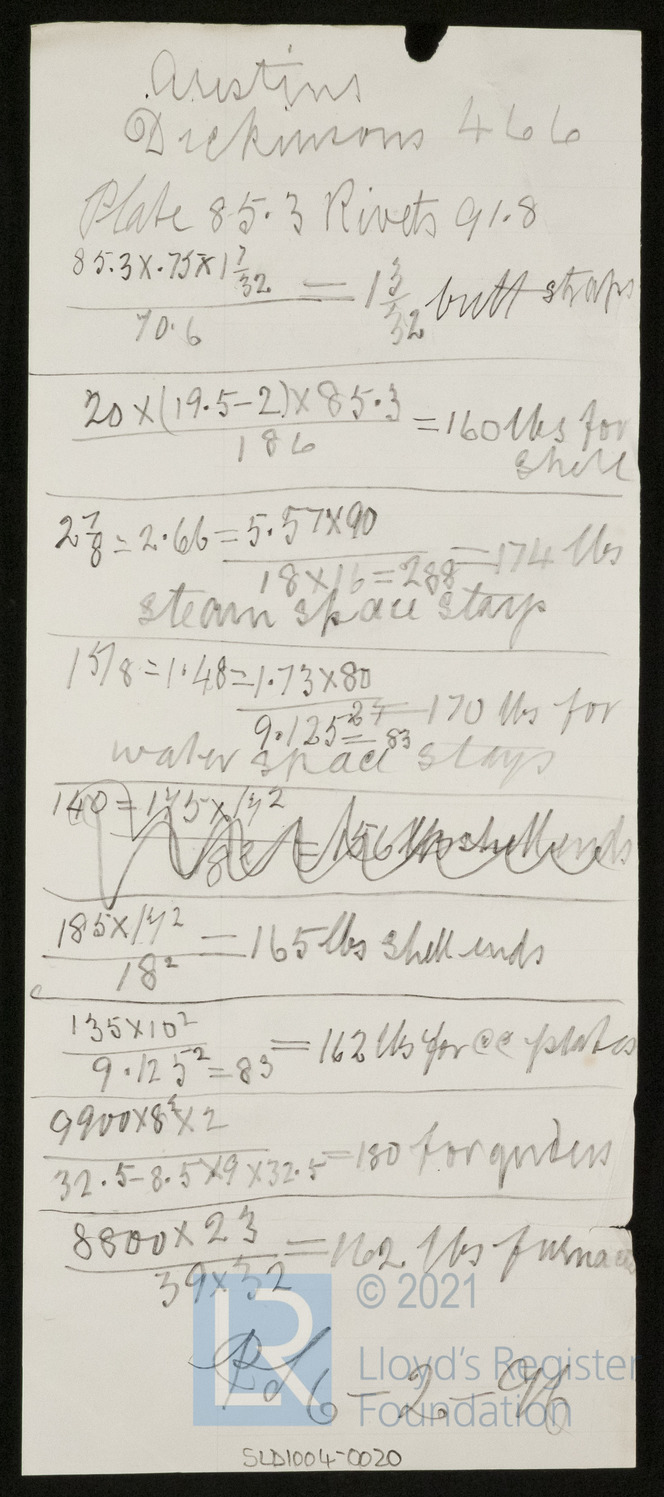 Austins
Dickinsons 466
Plate 85.3 Rivets 91.8
85.3 x .75 x 1 7/32
70.6
= 1 3/32 butt straps
20 x (19.5-2) x 85.3
186
= 160 lbs for
shell
2 7/8 = 2.66 = 5.57 x 90
18 x 16 = 288
= 174 lbs
steam space stays
1 5/8 = 1.48 = 1.73 x 80
9.125² = 83
= 170 lbs for
water space stays
= 156 lbs shell ends
185 x 17²
18²
= 165 lbs shell ends
135 x 10²
9.125² = 83
= 162 lbs for cc plates
9900 x 8² x 2
32.5 - 8.5 x 9 x 32.5
= 180 for girders
8800 x 23
39 x 32
= 162 lbs furnace
6-2-96
© 2021
Lloyd's Register
Foundation
SLD1004-0020